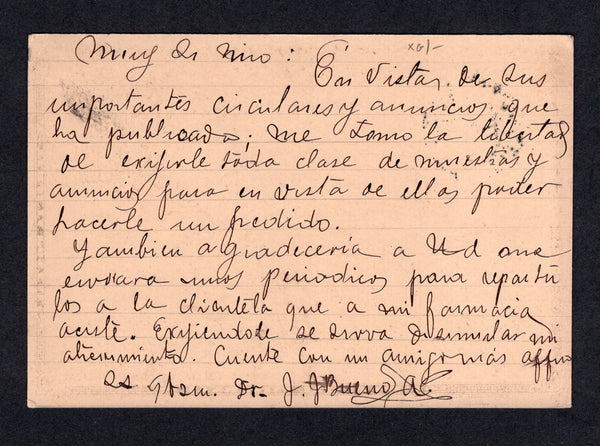 Muy Sr mio: En vista de sus
importantes circulares y anuncios que
ha publicado; me tomo la libertad
de exijirle toda clase de muestras y
anuncios para en vista de ellas poder
hacerle un pedido.
Tambien agradeceria a Ud me
enviara unos periodicos para repartir
los a la clientela que a mi farmacia
acude. se sirva disimular mi
atrevimiento. Cuente con un amigo más affmo
Dr. J. J Bueno